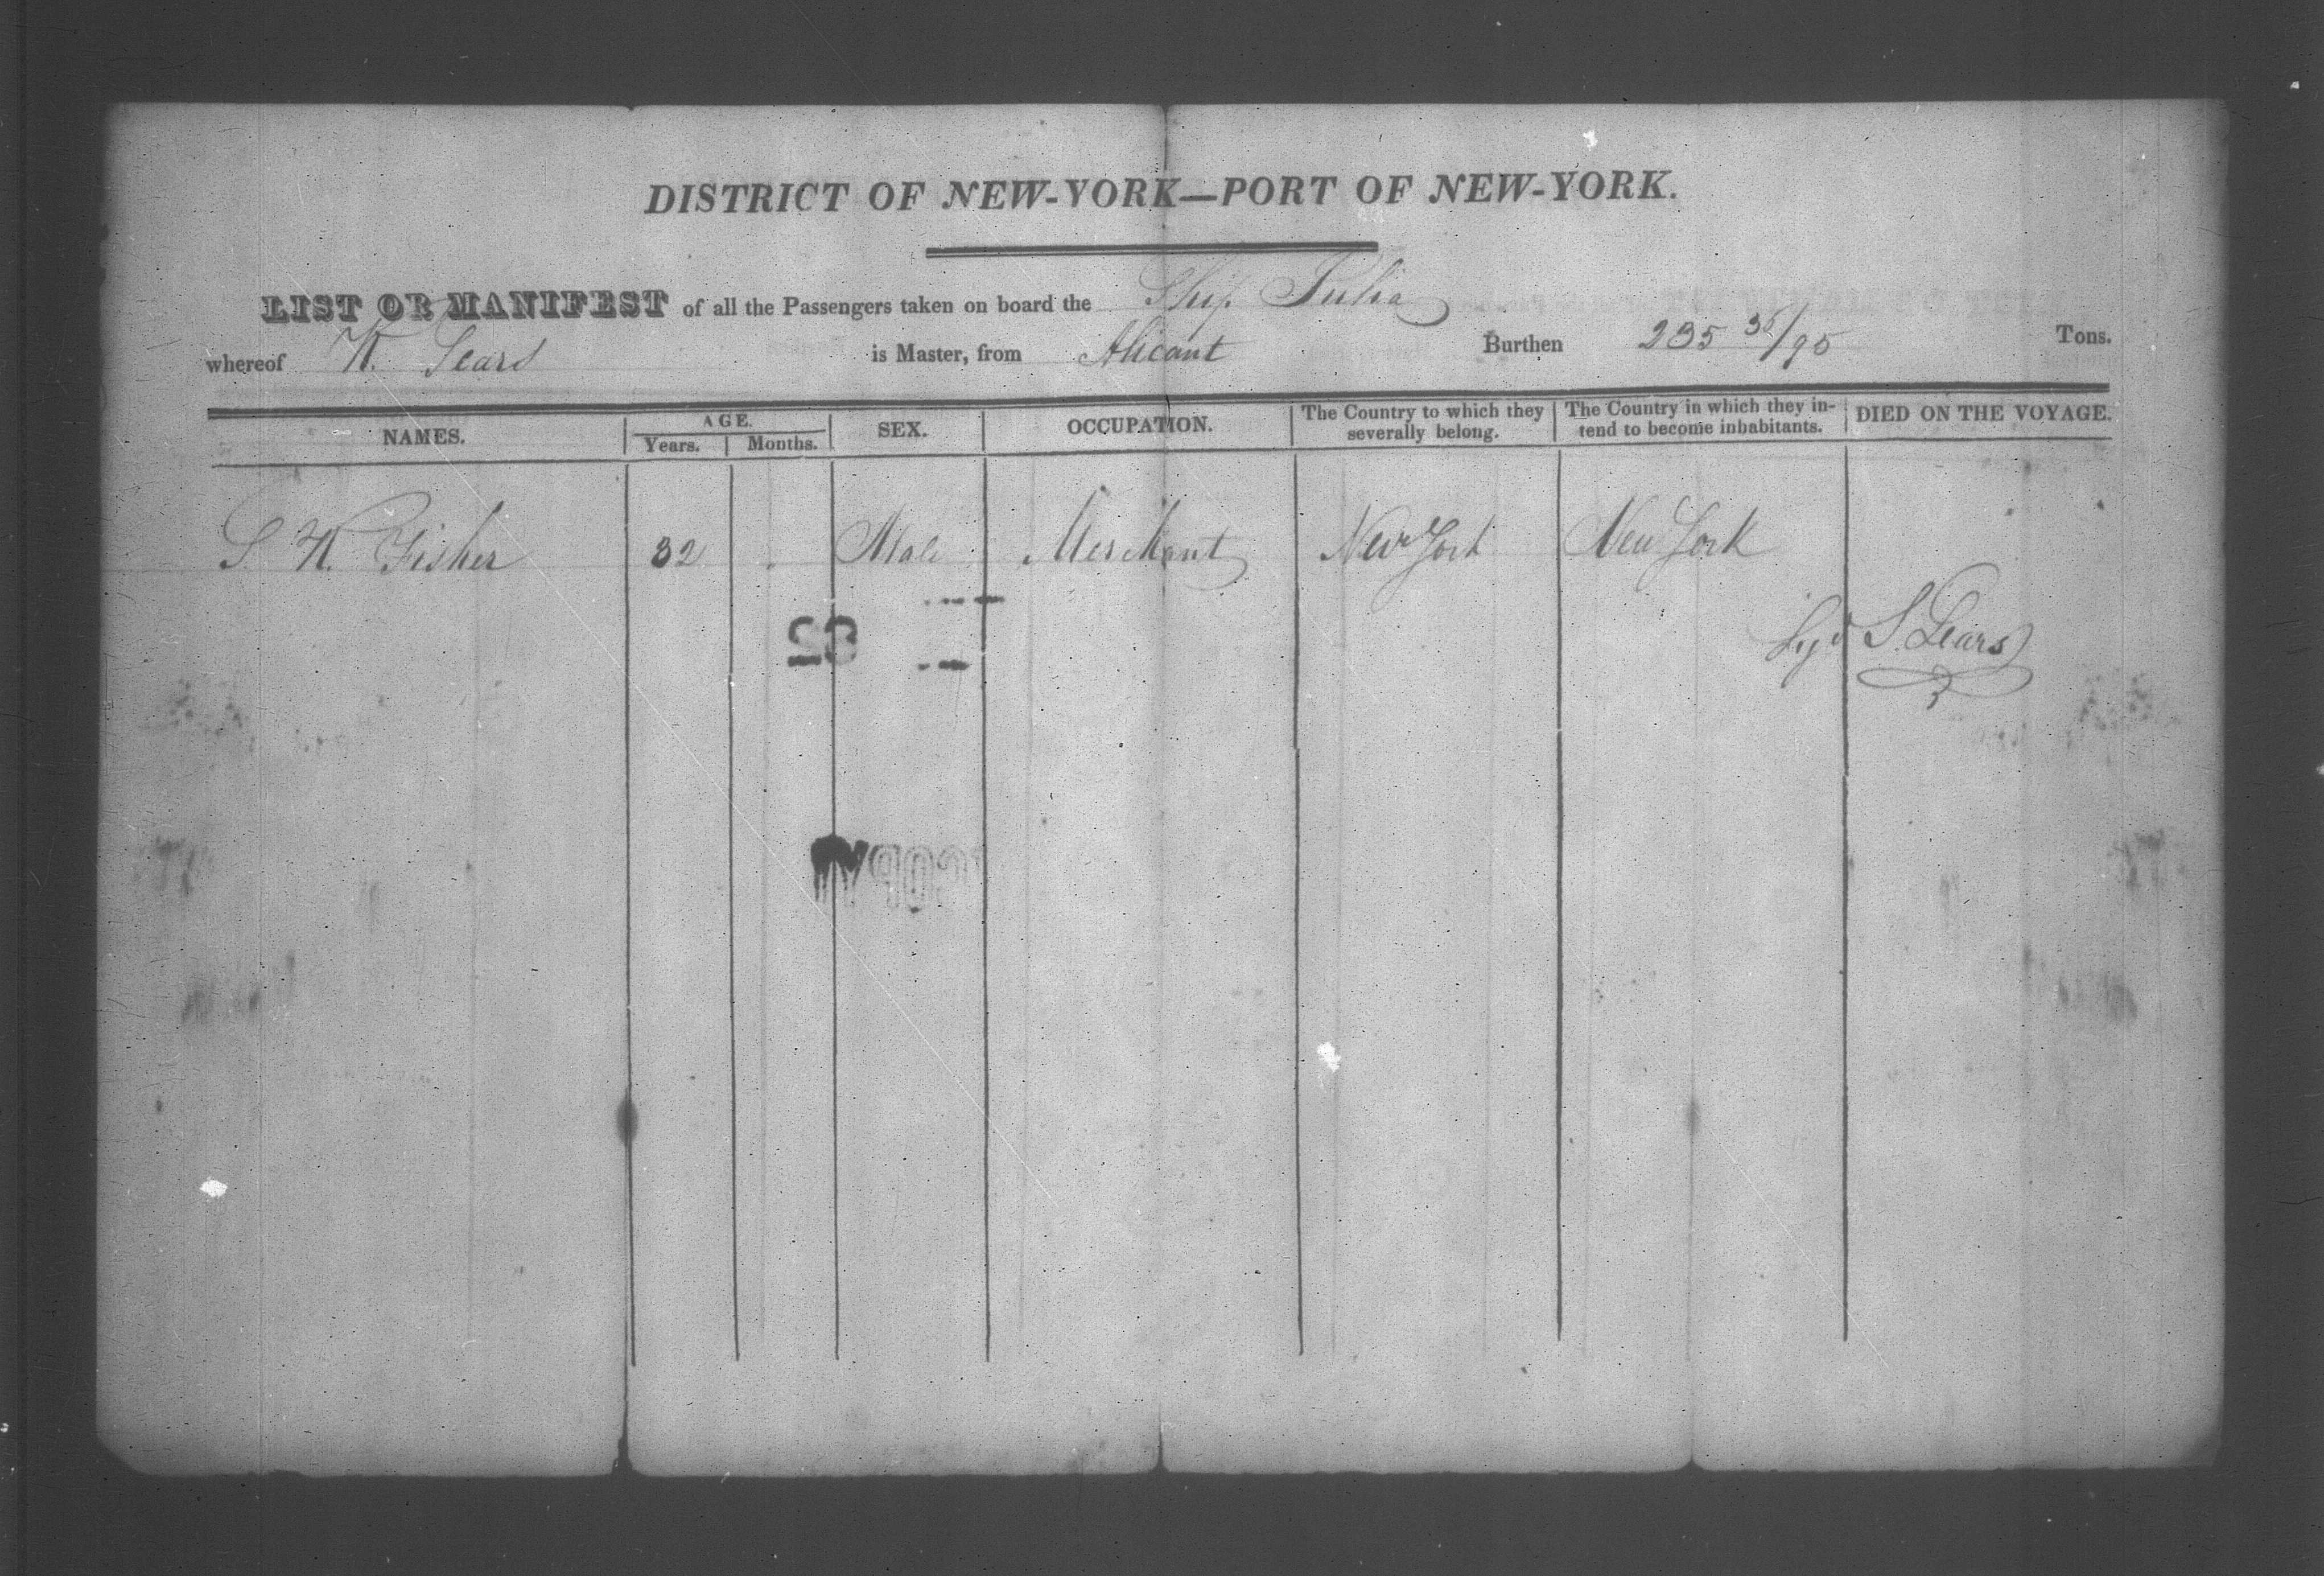 DISTRICT OF NEW-YORK—PORT OF NEW-YORK.
LIST OR MANIFEST of all the Passengers taken on board the Ship Julia
whereof K. Sears is Master, from Alicant Burthen 235 35/95 Tons.
NAMES. AGE. Years. Months. SEX. OCCUPATION. The Country to which they severally belong. The Country in which they intend to become inhabitants. DIED ON THE VOYAGE.
S. K. Fisher 32 Male Merchant New York New York
S. Sears
COPY